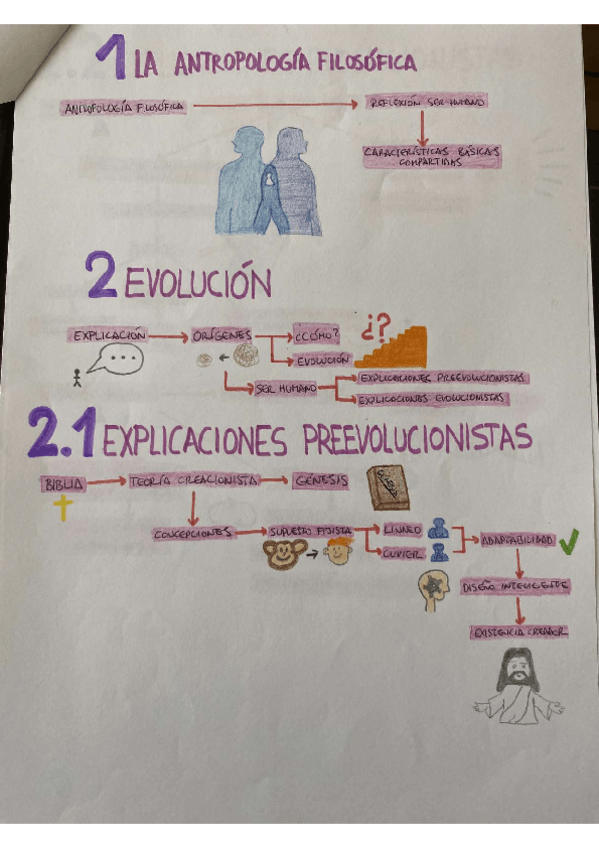 1 LA ANTROPOLOGÍA FILOSÓFICA
ANTROPOLOGÍA FILOSÓFICA
REFLEXIÓN SER HUMANO
CARACTERÍSTICAS BÁSICAS
COMPARTIDAS
2 EVOLUCIÓN
EXPLICACIÓN
ORÍGENES
¿CÓMO?
¿?
EVOLUCIÓN
SER HUMANO
EXPLICACIONES PREEVOLUCIONISTAS
EXPLICACIONES EVOLUCIONISTAS
2.1 EXPLICACIONES PREEVOLUCIONISTAS
BIBLIA
TEORÍA CREACIONISTA
GÉNESIS
CONCEPCIONES
SUPUESTO FIJISTA
LINNEO
CUVIER
ADAPTABILIDAD
DISEÑO INTELIGENTE
EXISTENCIA CREADOR